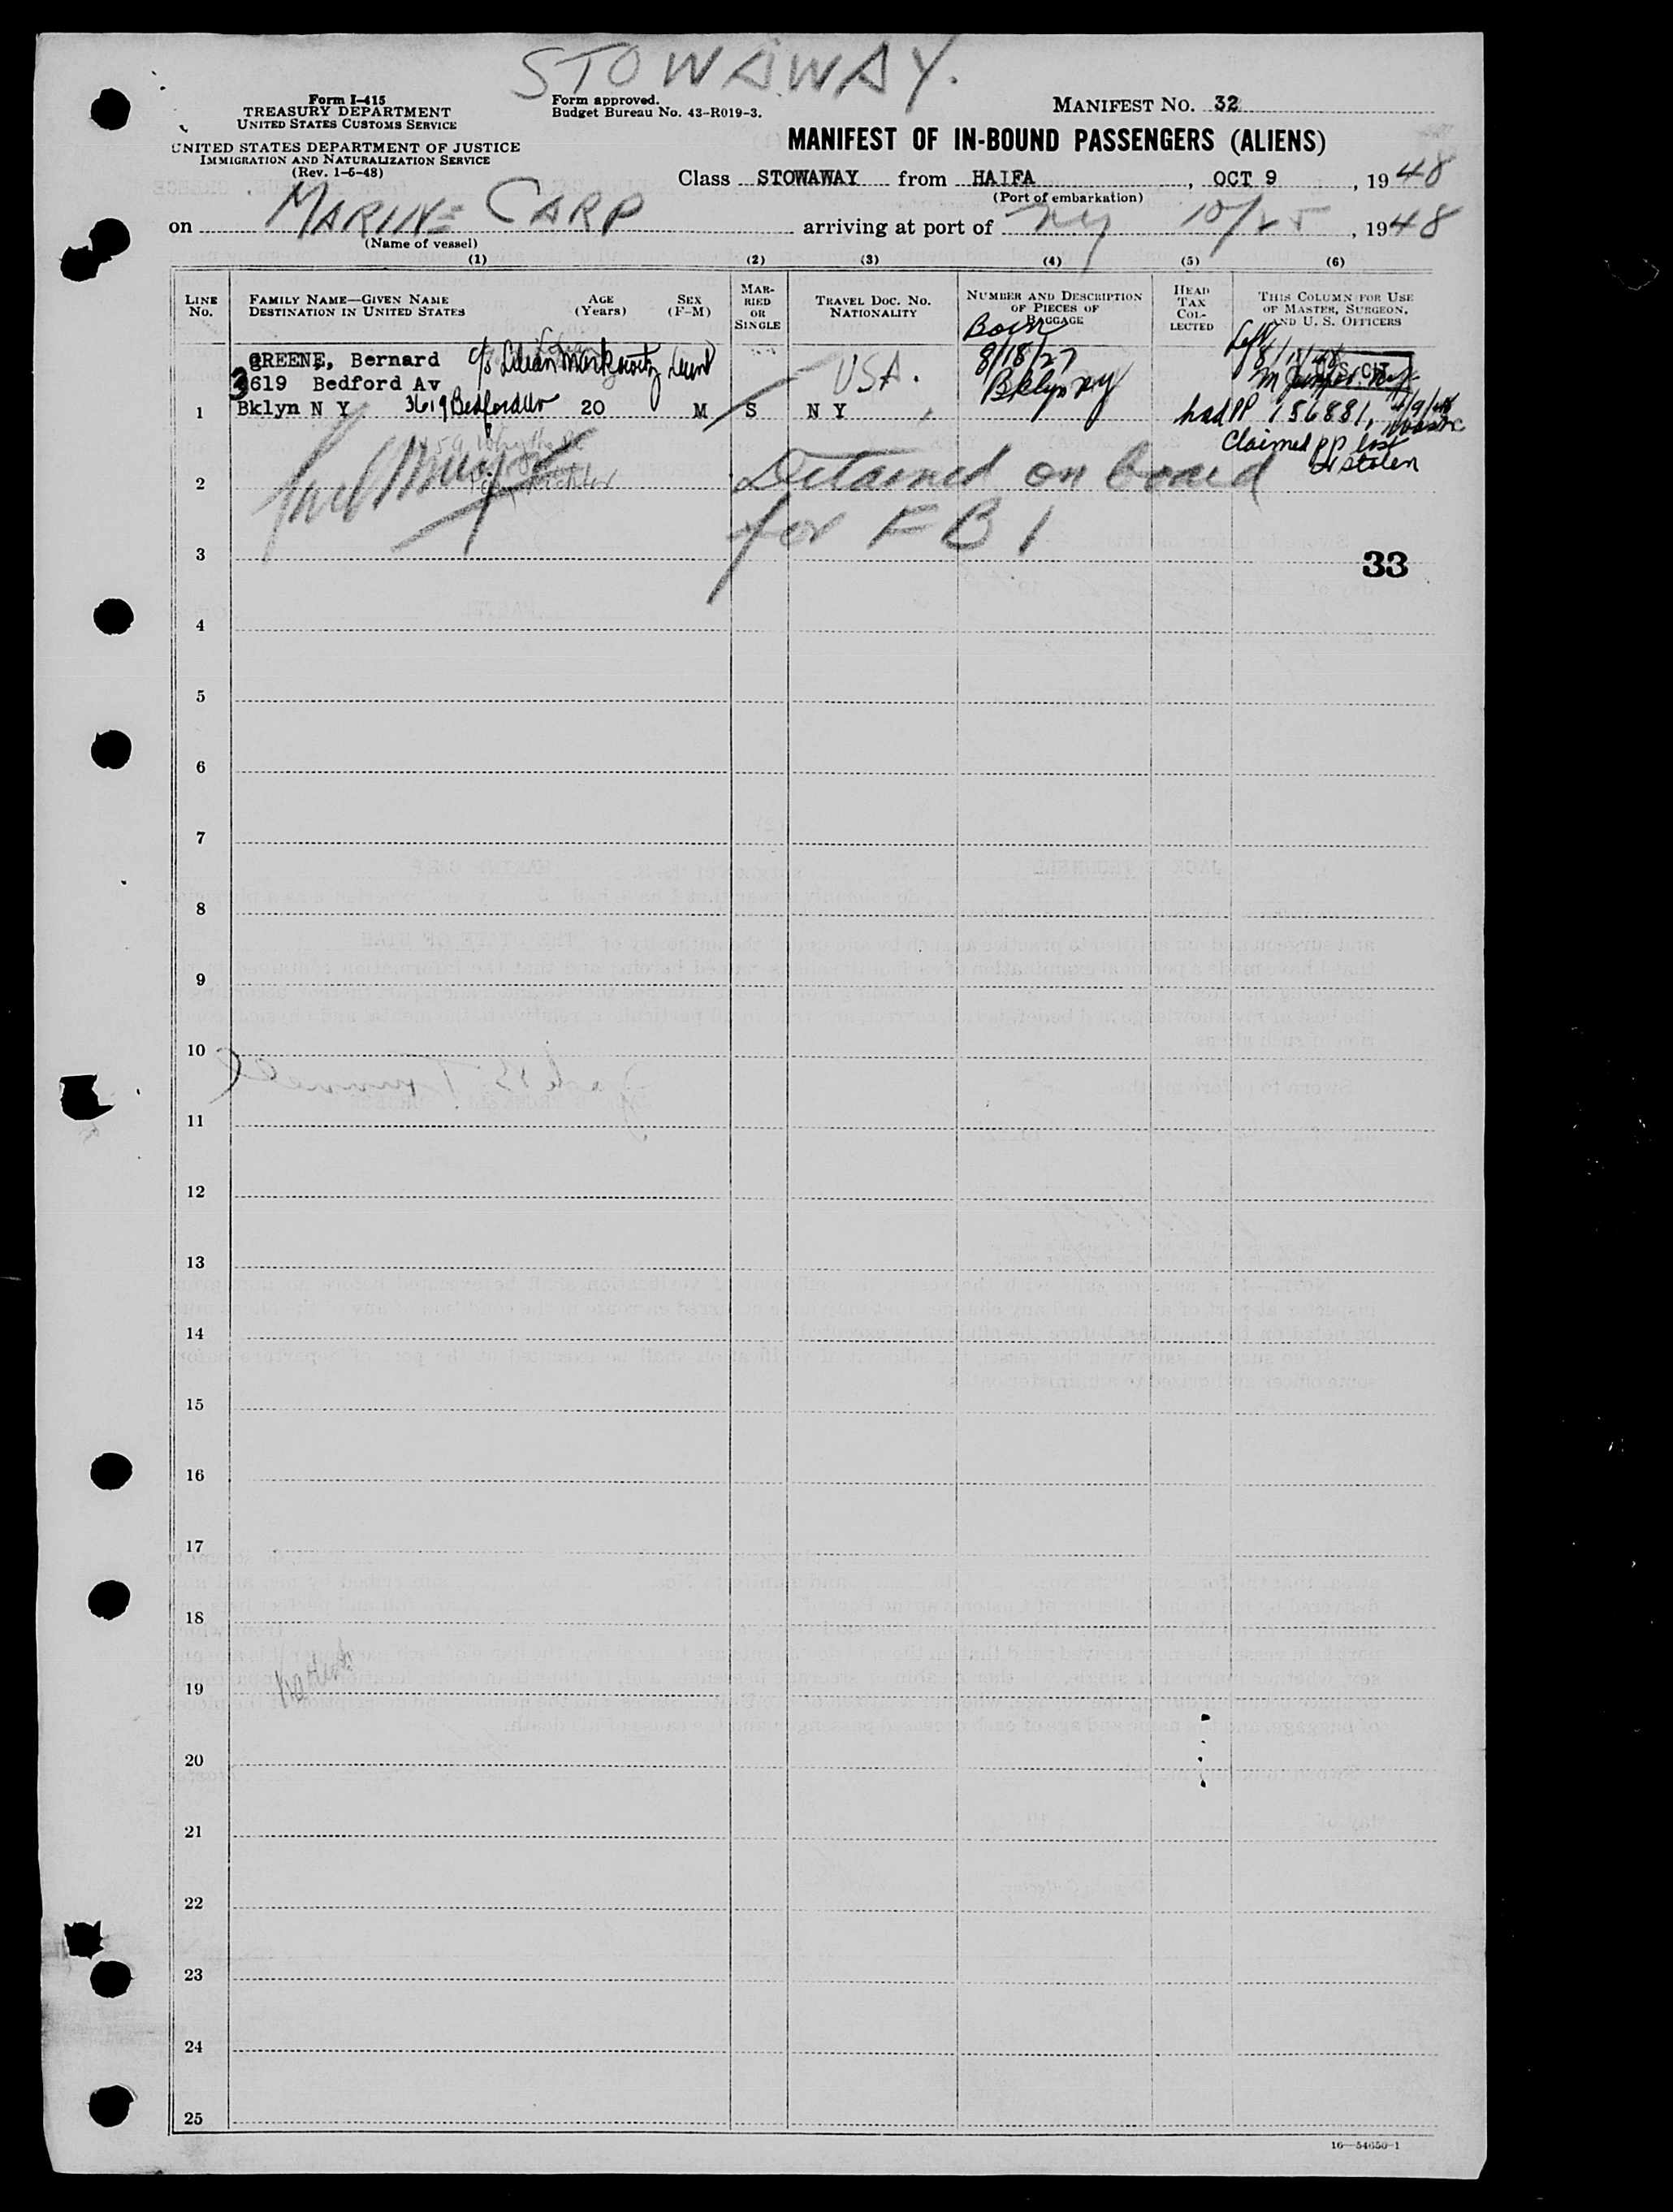 STOWAWAY.
Form I-415
TREASURY DEPARTMENT
UNITED STATES CUSTOMS SERVICE
UNITED STATES DEPARTMENT OF JUSTICE
IMMIGRATION AND NATURALIZATION SERVICE
(Rev. 1-5-48)
Form approved.
Budget Bureau No. 43-R019-3.
MANIFEST NO. 32
MANIFEST OF IN-BOUND PASSENGERS (ALIENS)
Class STOWAWAY from HAIFA, OCT 9, 1948
(Port of embarkation)
on MARINE CARP arriving at port of NY 10/25, 1948
(Name of vessel)
(1) (2) (3) (4) (5) (6)
LINE No.
FAMILY NAME—GIVEN NAME
DESTINATION IN UNITED STATES
AGE (Years)
SEX (F-M)
MARRIED OR SINGLE
TRAVEL DOC. NO. NATIONALITY
NUMBER AND DESCRIPTION OF PIECES OF BAGGAGE
HEAD TAX COLLECTED
THIS COLUMN FOR USE OF MASTER, SURGEON, AND U. S. OFFICERS
GREENE, Bernard c/o Lilian Markowitz (aunt)
3619 Bedford Av
1 Bklyn N Y 3619 Bedford Av 20 M S N Y
USA.
Born
8/18/27
Bklyn NY
Left
U.S. CIT.
had PP 156881,
Claimed PP lost
or stolen
2 Detained on board
for FBI
3
33
4
5
6
7
8
9
10
11
12
13
14
15
16
17
18
19
20
21
22
23
24
25
16—54650-1